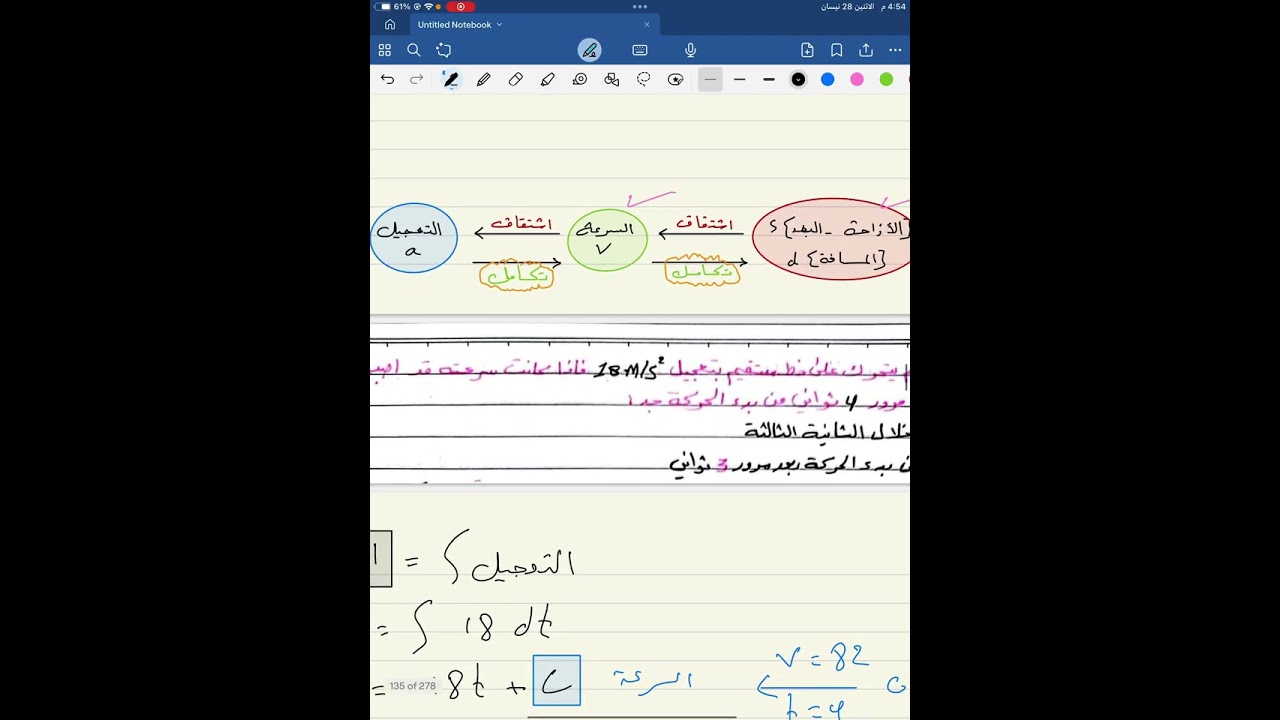 61%
4:54 م الاثنين 28 نيسان
Untitled Notebook
اشتقاق اشتقاق
التعجيل a
السرعة V
الأزاحة - البعد} S
المسافة} d
تكامل تكامل
يتحرك على خط مستقيم بتعجيل 18 M/S² فاذا كانت سرعته قد
مرور 4 ثواني من بدء الحركة جد:
خلال الثانية الثالثة
بدء الحركة بعد مرور 3 ثواني
= ∫ التعجيل
= ∫ 18 dt
= 8t + C السرعة V = 82
t = 4
135 of 278